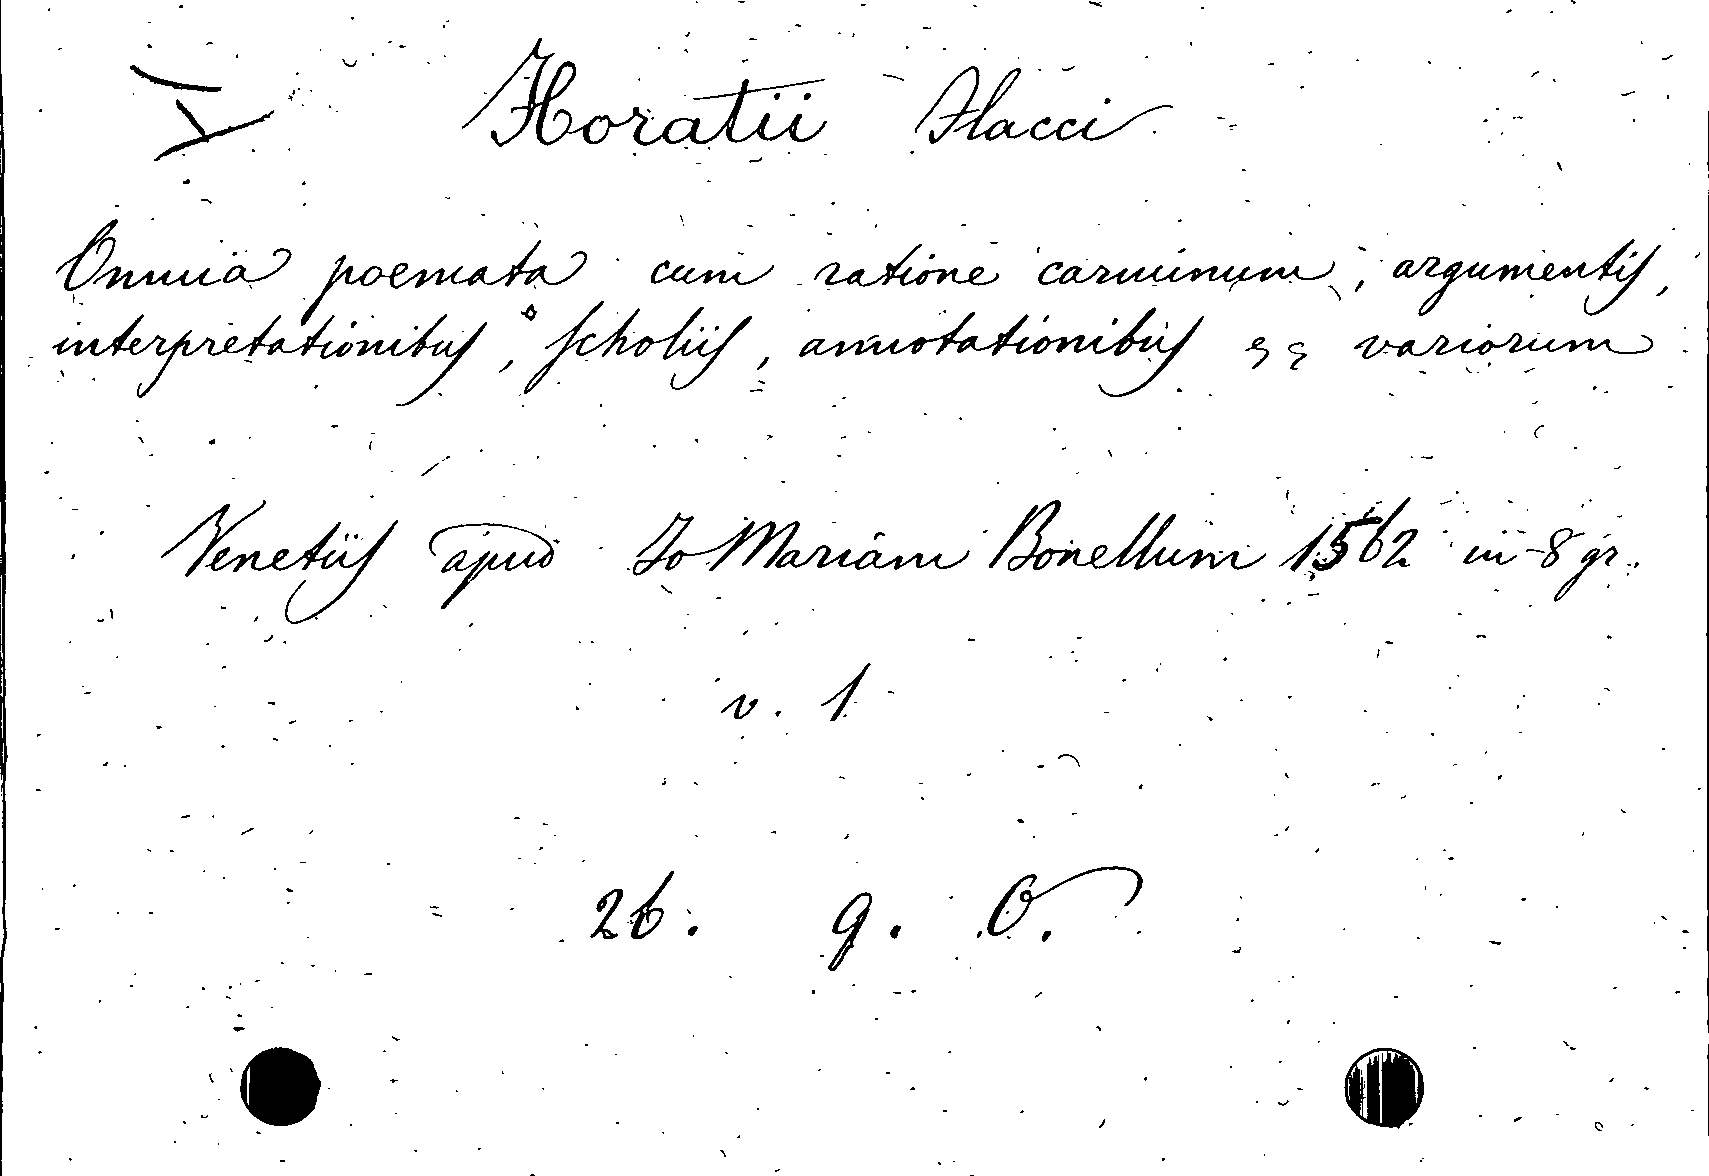 Horatii Flacci
Omnia poemata cum ratione carminum, argumentis,
interpretationibus, scholiis, annotationibus variorum
Venetiis apud Jo Mariam Bonellum 1562 in-8 gr.
v. 1
26. 9. O.